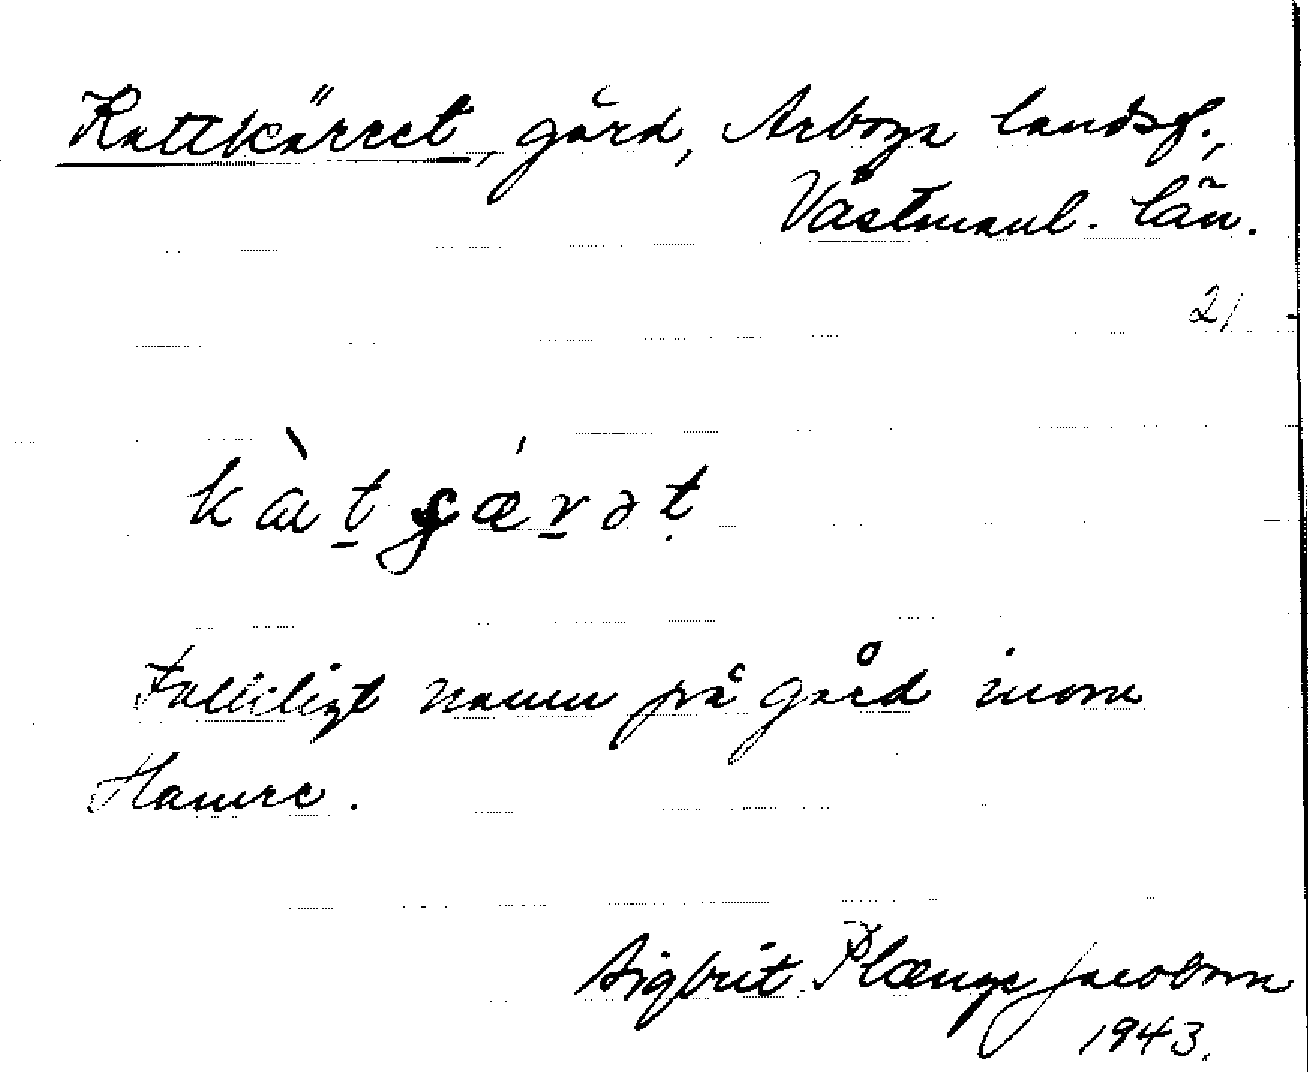 Kattkärret, gård, Arboga landsf.,
Västmanl. län.
21
Folkligt namn på gård inom
Hamre.
Sigbrit Plænge Jacobson
1943.